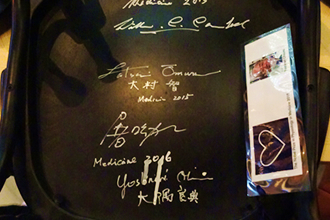 Medicine 2015
William C. Campbell
Satoshi Ōmura
大村 智
Medicine 2015
屠呦呦
Medicine 2016
Yoshinori Ohsumi
大隅良典